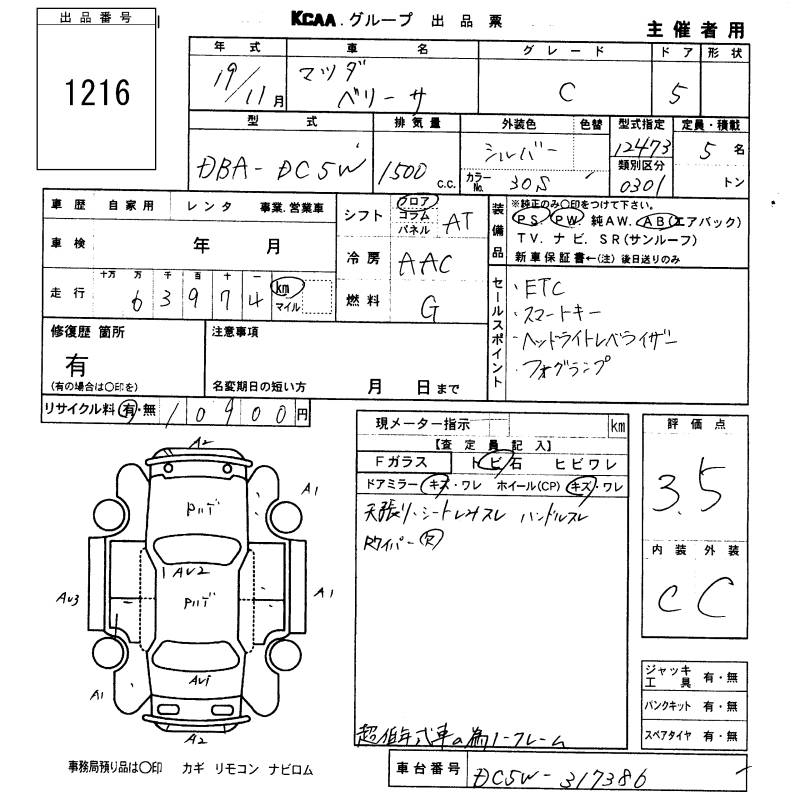 出品番号
1216
KCAA.グループ 出品票
主催者用
年式
19/11月
車名
マツダ
ベリーサ
グレード
C
ドア
5
形状
型式
DBA-DC5W
排気量
1500 c.c.
外装色
シルバー
色替
カラーNo.
30S
型式指定
12473
類別区分
0301
定員・積載
5名
トン
車歴 自家用 レンタ 事業.営業車
車検 年 月
走行
十万 万 千 百 十 一
6 3 9 7 4
km
マイル
シフト
フロア
コラム
パネル
AT
冷房
AAC
燃料
G
装備品
※純正のみ〇印をつけて下さい。
PS. PW. 純AW. AB(エアバック)
TV. ナビ. SR(サンルーフ)
新車保証書←(注)後日送りのみ
セールスポイント
・ETC
・スマートキー
・ヘッドライトレベライザー
・フォグランプ
修復歴 箇所
有
(有の場合は〇印を)
注意事項
名変期日の短い方 月 日まで
リサイクル料 有・無 10900円
現メーター指示 km
【査定員記入】
Fガラス トビ石 ヒビワレ
ドアミラー キズ・ワレ ホイール(CP) キズ・ワレ
天張り・シートしみスレ ハンドルスレ
Rワイパー欠
超低年式車の為ノークレーム
評価点
3.5
内装 外装
C C
A2
A1
Pバデ
AU2
AU3
Pバデ
A1
AU1
A1
A2
ジャッキ
工具 有・無
パンクキット 有・無
スペアタイヤ 有・無
事務局預り品は〇印 カギ リモコン ナビロム
車台番号 DC5W-317386